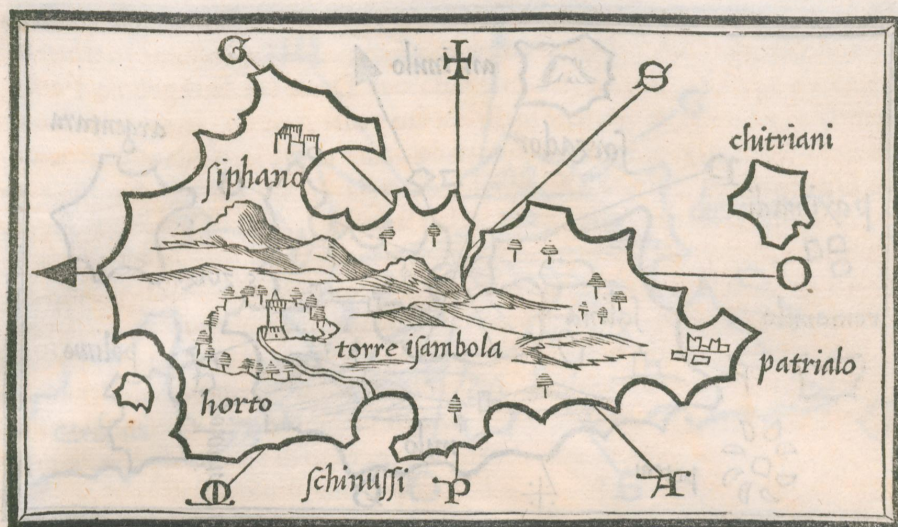 G
S
chitriani
ſiphano
O
torre iſambola
patrialo
horto
ſchinuſſi
M
P
A